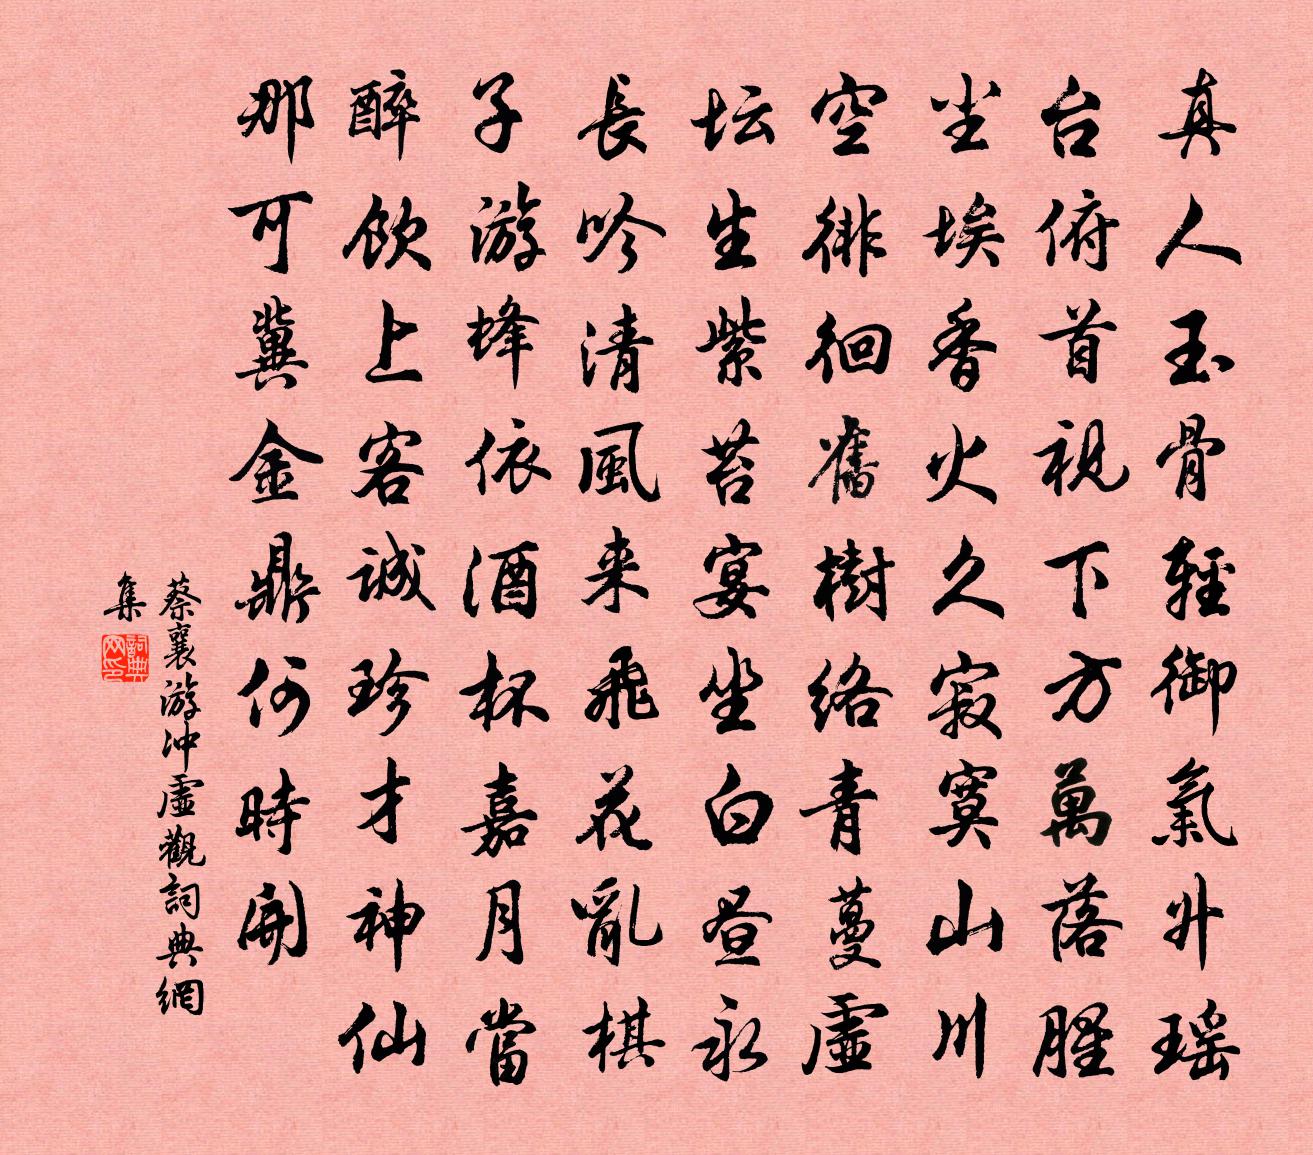 真人玉骨輕御氣升瑶
台俯首視下方萬落腥
坐埃香火久寂寞山川
空徘徊舊樹絡青蔓虛
坛生紫苔宴坐白昼永
長吟清風来飛花亂棋
子游蜂依酒杯嘉月當
醉飲上客誠珍才神仙
那可冀金鼎何時開
蔡襄游冲虛觀詞典網
集
詞典网印